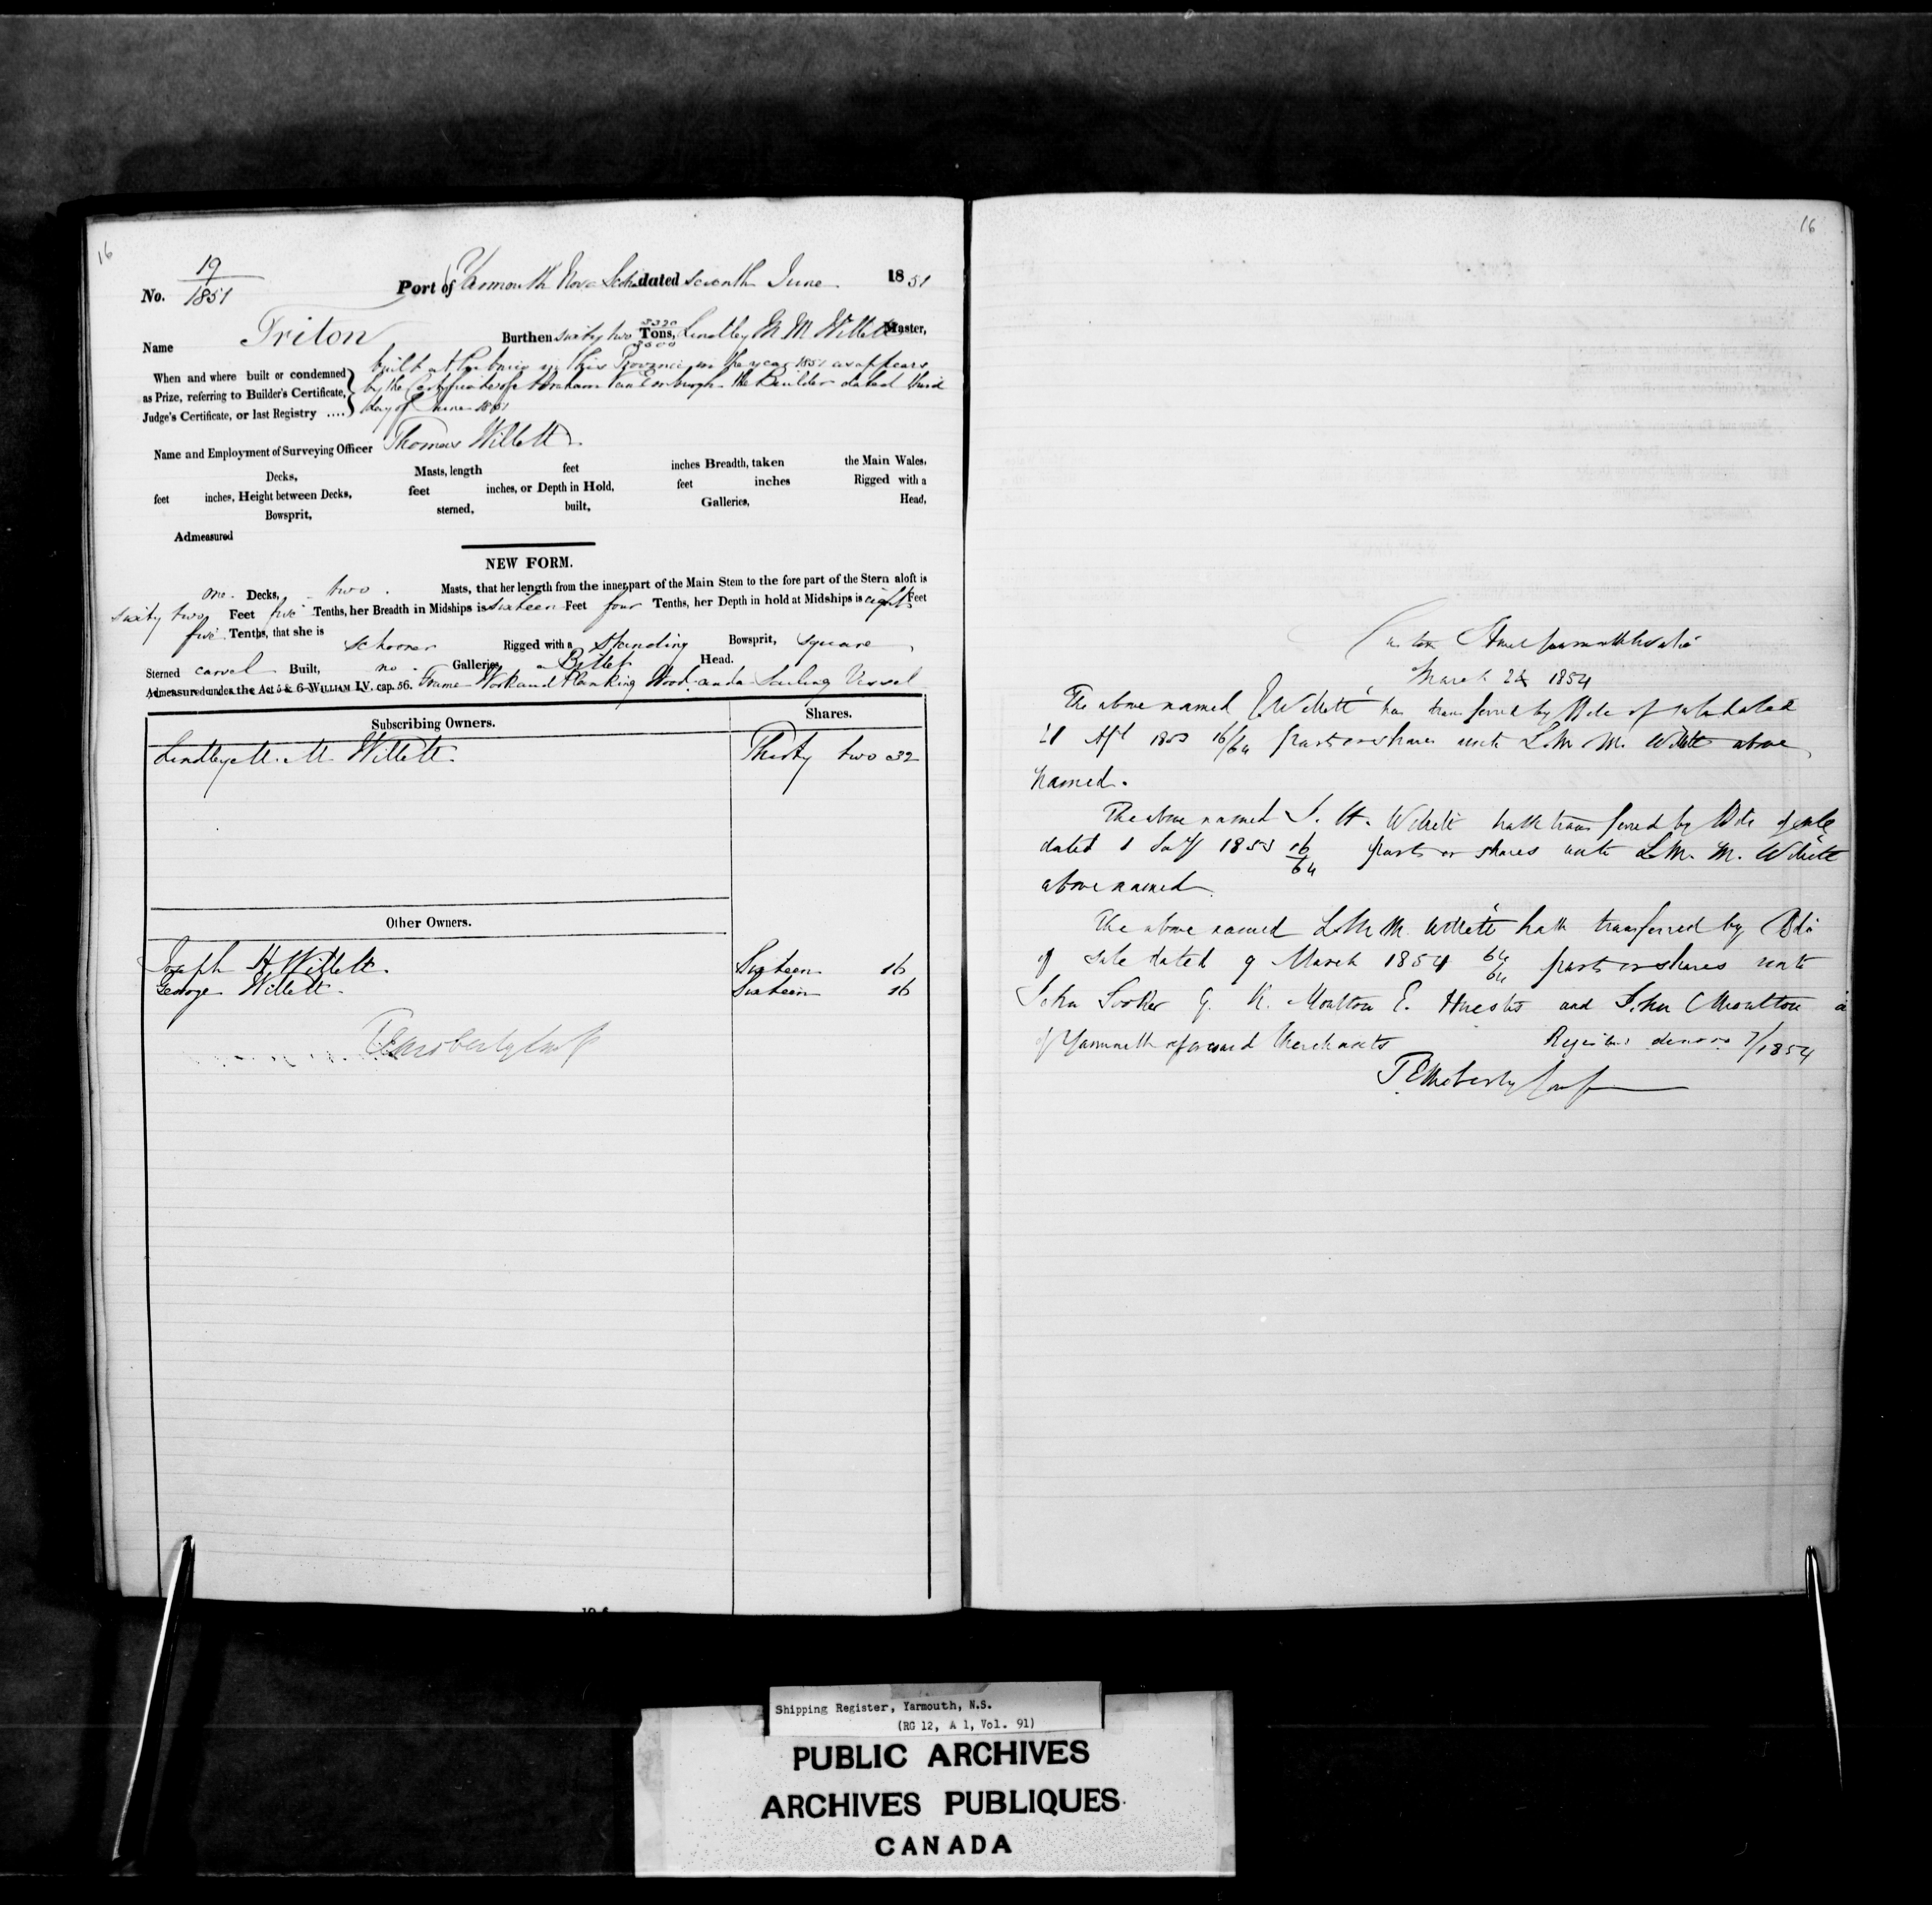 16
No. 19/1851 Port of Yarmouth Nova Scotia dated seventh June 1851
Name Triton Burthen sixty two 3320/3500 Tons, Lindley M. M. Willett Master,
When and where built or condemned as Prize, referring to Builder's Certificate, Judge's Certificate, or last Registry ....
built at in this Province in the year 1851 as appears
by the Certificate of Abraham Van the Builder dated third
day of June 1851
Name and Employment of Surveying Officer Thomas Willett
Decks, Masts, length feet inches Breadth, taken the Main Wales,
feet inches, Height between Decks, feet inches, or Depth in Hold, feet inches Rigged with a
Bowsprit, sterned, built, Galleries, Head,
Admeasured
NEW FORM.
one Decks, two Masts, that her length from the inner part of the Main Stem to the fore part of the Stern aloft is
sixty two Feet five Tenths, her Breadth in Midships is sixteen Feet four Tenths, her Depth in hold at Midships is eight Feet
five Tenths, that she is schooner Rigged with a standing Bowsprit, square
Sterned carvel Built, no Galleries, a Billet Head.
Admeasured under the Act 5 & 6 WILLIAM IV. cap. 56. Frame Work and Planking Wood and a Sailing Vessel
Subscribing Owners. Shares.
Lindley M. M. Willett Thirty two 32
Other Owners.
Joseph H Willett. Sixteen 16
George Willett Sixteen 16
16
March 24 1854
The above named Willett has transferred by Bill of sale dated
21 Apl 1853 16/64 parts or shares unto L. M. M. Willett above
named.
The above named J. H. Willett hath transferred by Bill of sale
dated 1 1853 16/64 parts or shares unto L. M. M. Willett
above named
The above named L M M. Willett hath transferred by Bill
of sale dated 9 March 1854 64/64 parts or shares unto
John G. K. Moulton E. Huestis and John Moulton
of Yarmouth aforesaid Merchants Registered de novo 7/1854
Shipping Register, Yarmouth, N.S.
(RG 12, A 1, Vol. 91)
PUBLIC ARCHIVES
ARCHIVES PUBLIQUES
CANADA